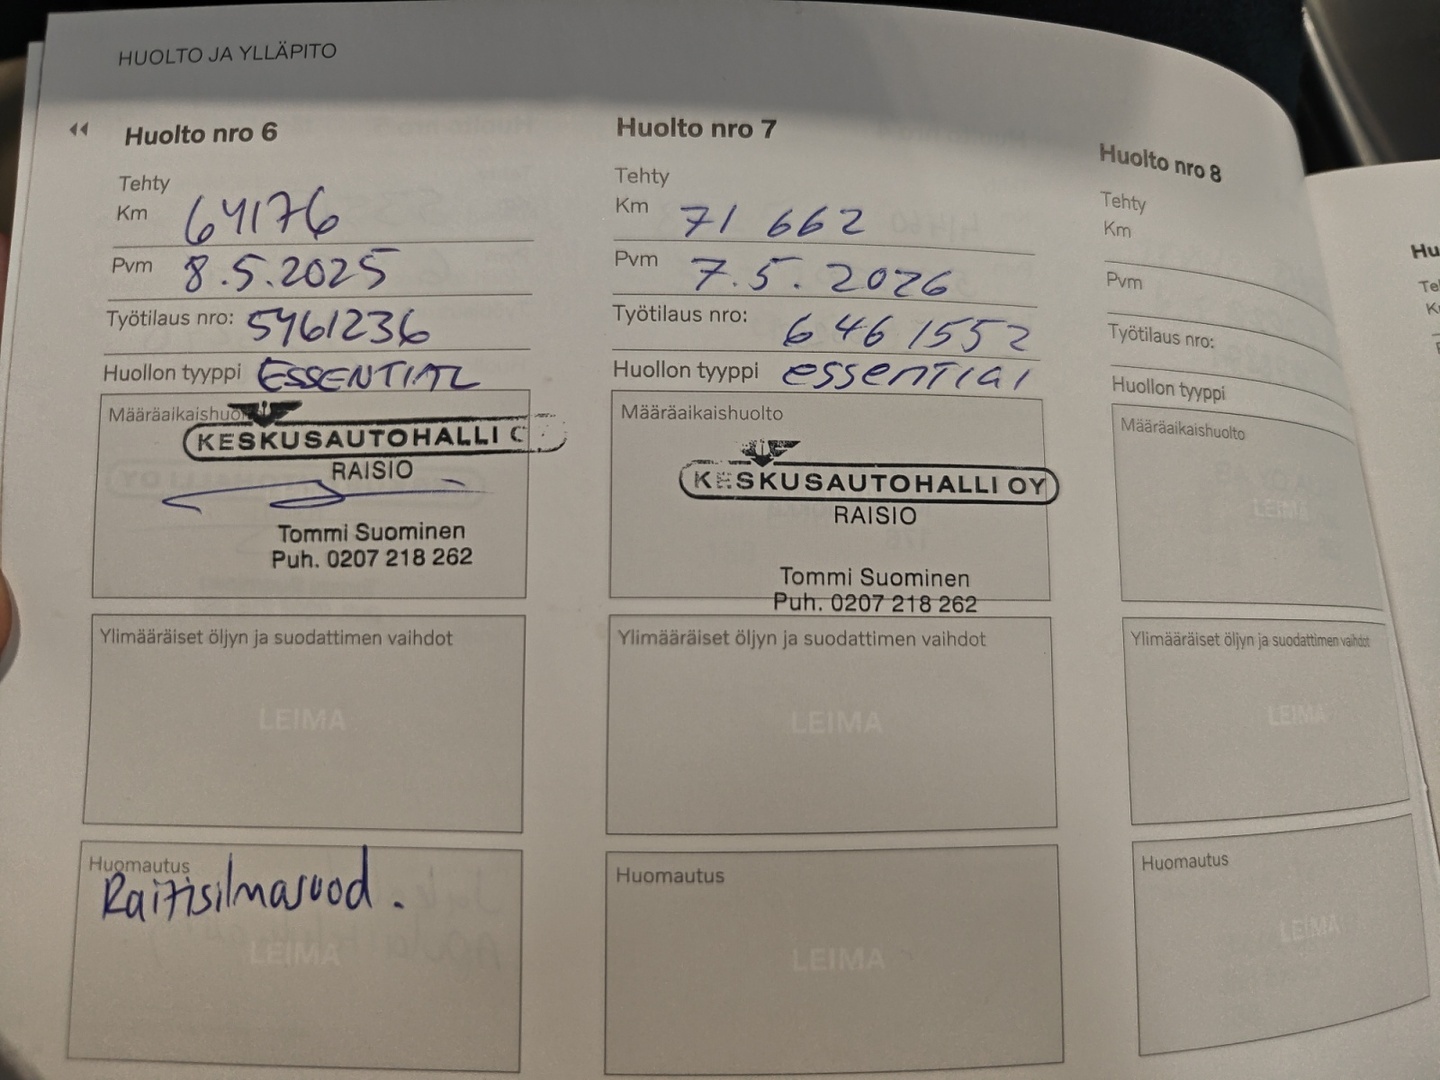 HUOLTO JA YLLÄPITO
Huolto nro 6
Tehty
Km 64176
Pvm 8.5.2025
Työtilaus nro: 5461236
Huollon tyyppi ESSENTIAL
Määräaikaishuolto
KESKUSAUTOHALLI
RAISIO
Tommi Suominen
Puh. 0207 218 262
Ylimääräiset öljyn ja suodattimen vaihdot
LEIMA
Huomautus
Raitisilmasuod.
LEIMA
Huolto nro 7
Tehty
Km 71 662
Pvm 7.5.2026
Työtilaus nro: 6461552
Huollon tyyppi essential
Määräaikaishuolto
KESKUSAUTOHALLI OY
RAISIO
Tommi Suominen
Puh. 0207 218 262
Ylimääräiset öljyn ja suodattimen vaihdot
LEIMA
Huomautus
LEIMA
Huolto nro 8
Tehty
Km
Pvm
Työtilaus nro:
Huollon tyyppi
Määräaikaishuolto
LEIMA
Ylimääräiset öljyn ja suodattimen vaihdot
LEIMA
Huomautus
LEIMA